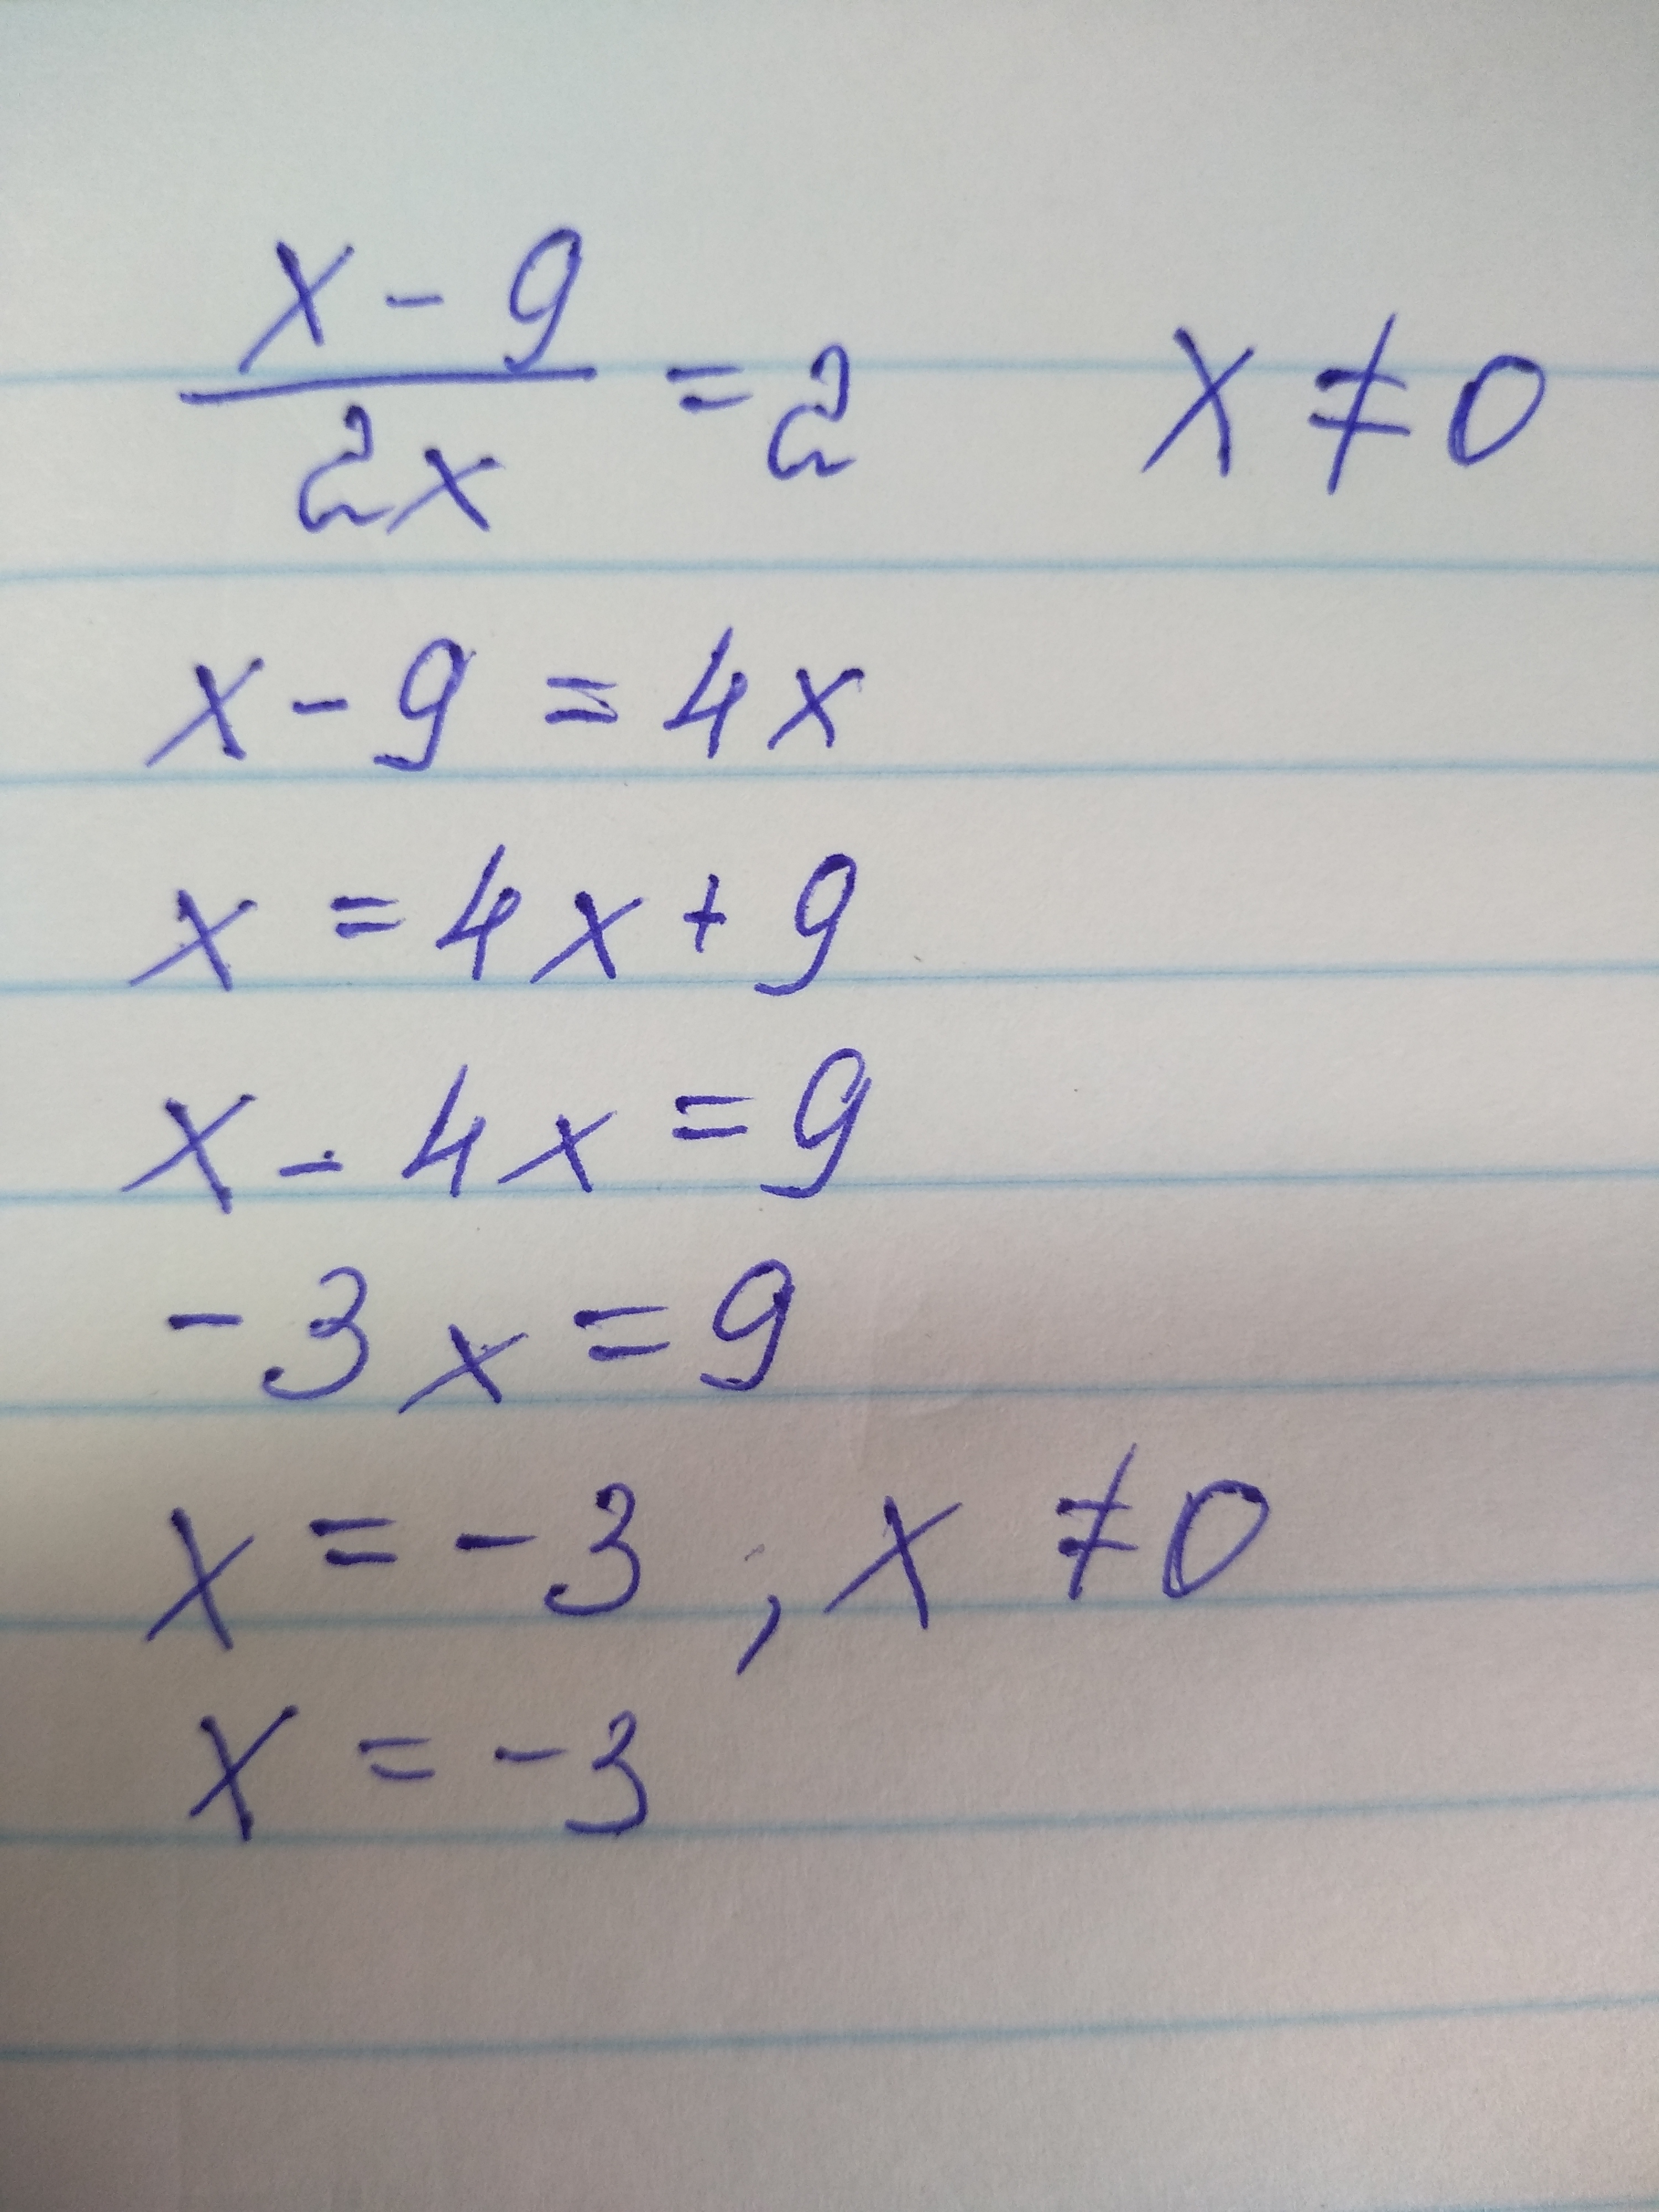 x - 9 / 2x = 2 x ≠ 0
x - 9 = 4x
x = 4x + 9
x - 4x = 9
-3x = 9
x = -3 , x ≠ 0
x = -3